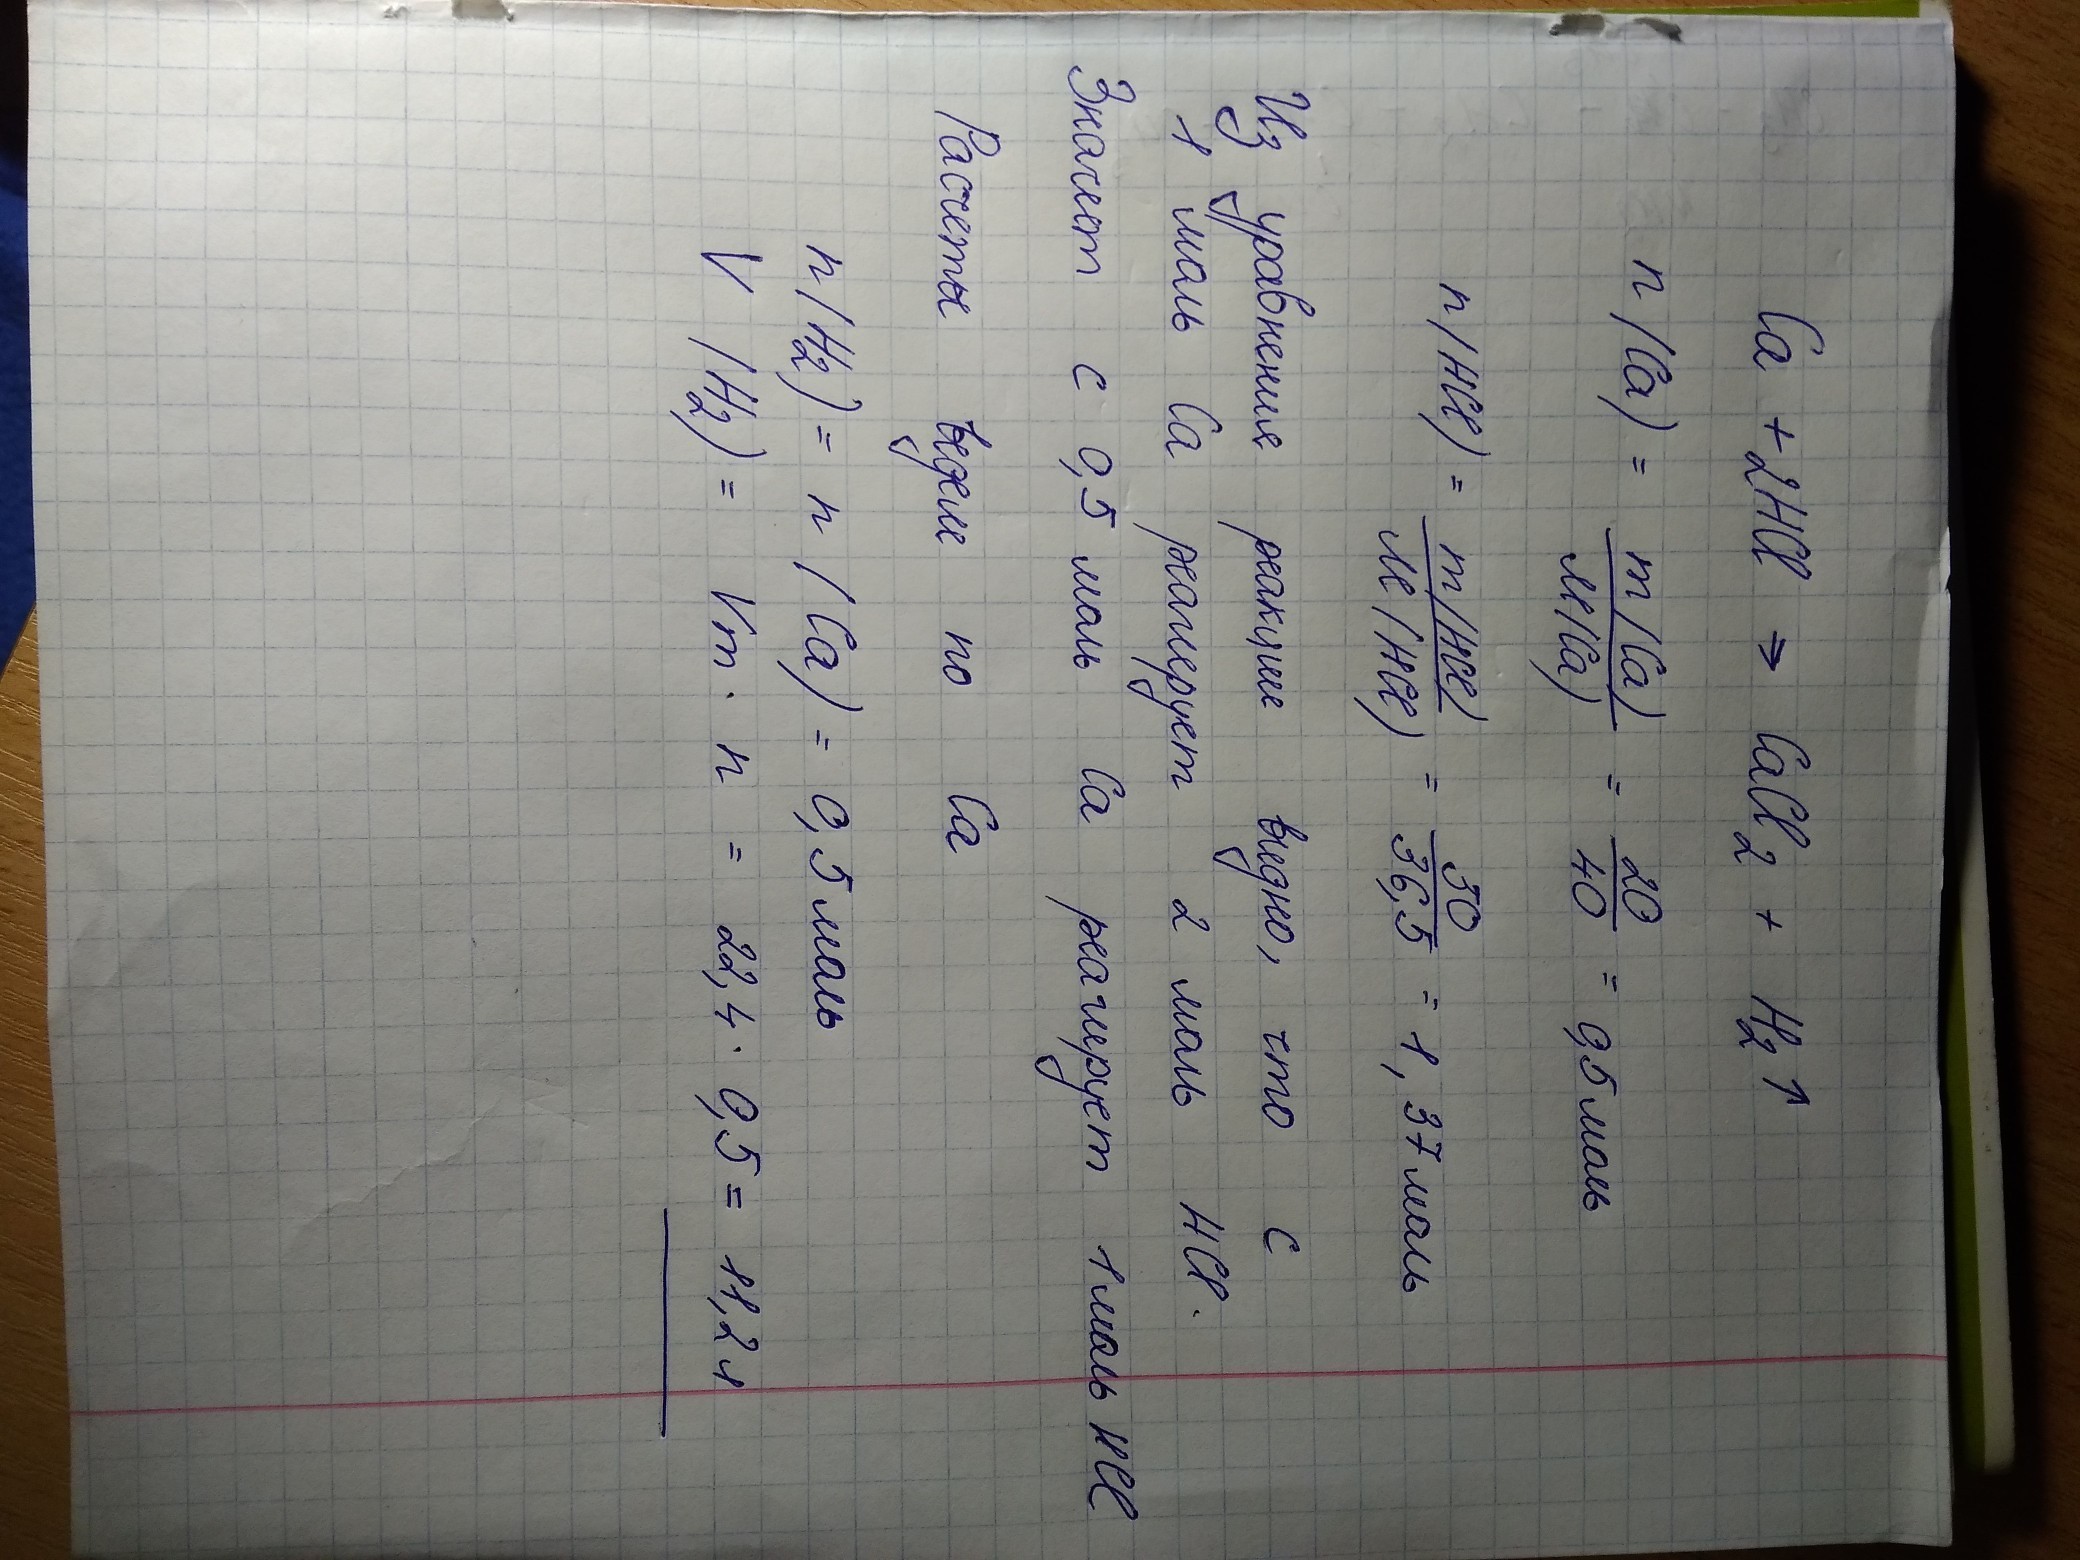 Ca + 2HCl → CaCl₂ + H₂↑
n(Ca) = m(Ca)/M(Ca) = 20/40 = 0,5 моль
n(HCl) = m(HCl)/M(HCl) = 50/36,5 = 1,37 моль
Из уравнения реакции видно, что с
1 моль Ca реагирует 2 моль HCl.
Значет с 0,5 моль Ca реагирует 1 моль HCl
Расчеты ведем по Ca
n(H₂) = n(Ca) = 0,5 моль
V(H₂) = Vm · n = 22,4 · 0,5 = 11,2 л